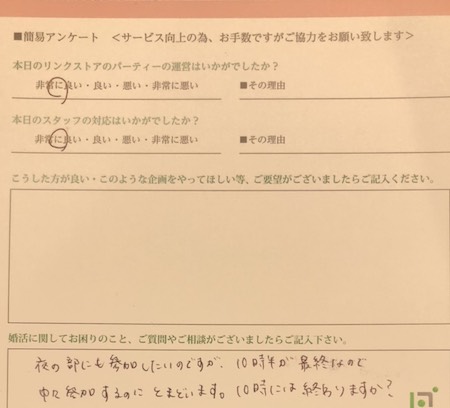 ■簡易アンケート ＜サービス向上の為、お手数ですがご協力をお願い致します＞
本日のリンクストアのパーティーの運営はいかがでしたか？
非常に良い・良い・悪い・非常に悪い ■その理由
本日のスタッフの対応はいかがでしたか？
非常に良い・良い・悪い・非常に悪い ■その理由
こうした方が良い・このような企画をやってほしい等、ご要望がございましたらご記入ください。
婚活に関してお困りのこと、ご質問やご相談がございましたらご記入下さい。
夜の部にも参加したいのですが、10時半が最終なので
中々参加するのにとまどいます。10時には終わりますか？